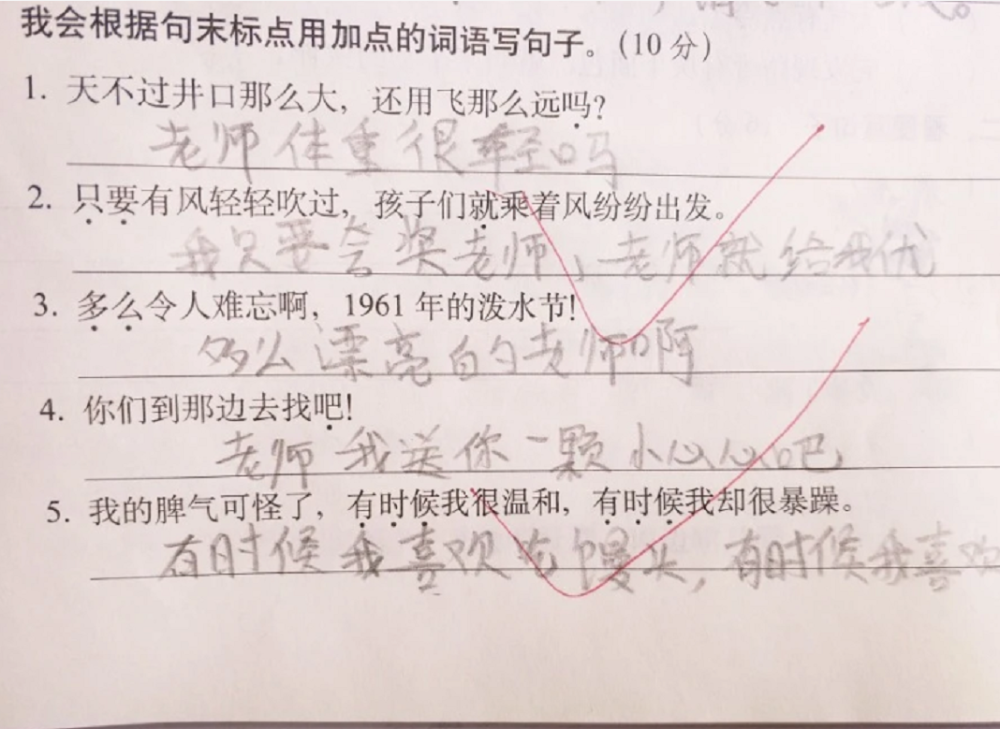 我会根据句末标点用加点的词语写句子。(10 分)
1. 天不过井口那么大，还用飞那么远吗?
老师体重很轻吗
2. 只要有风轻轻吹过，孩子们就乘着风纷纷出发。
我只要夸奖老师，老师就给我优
3. 多么令人难忘啊，1961 年的泼水节!
多么漂亮的老师啊
4. 你们到那边去找吧!
老师我送你一颗小心心吧
5. 我的脾气可怪了，有时候我很温和，有时候我却很暴躁。
有时候我喜欢吃馒头，有时候我喜欢